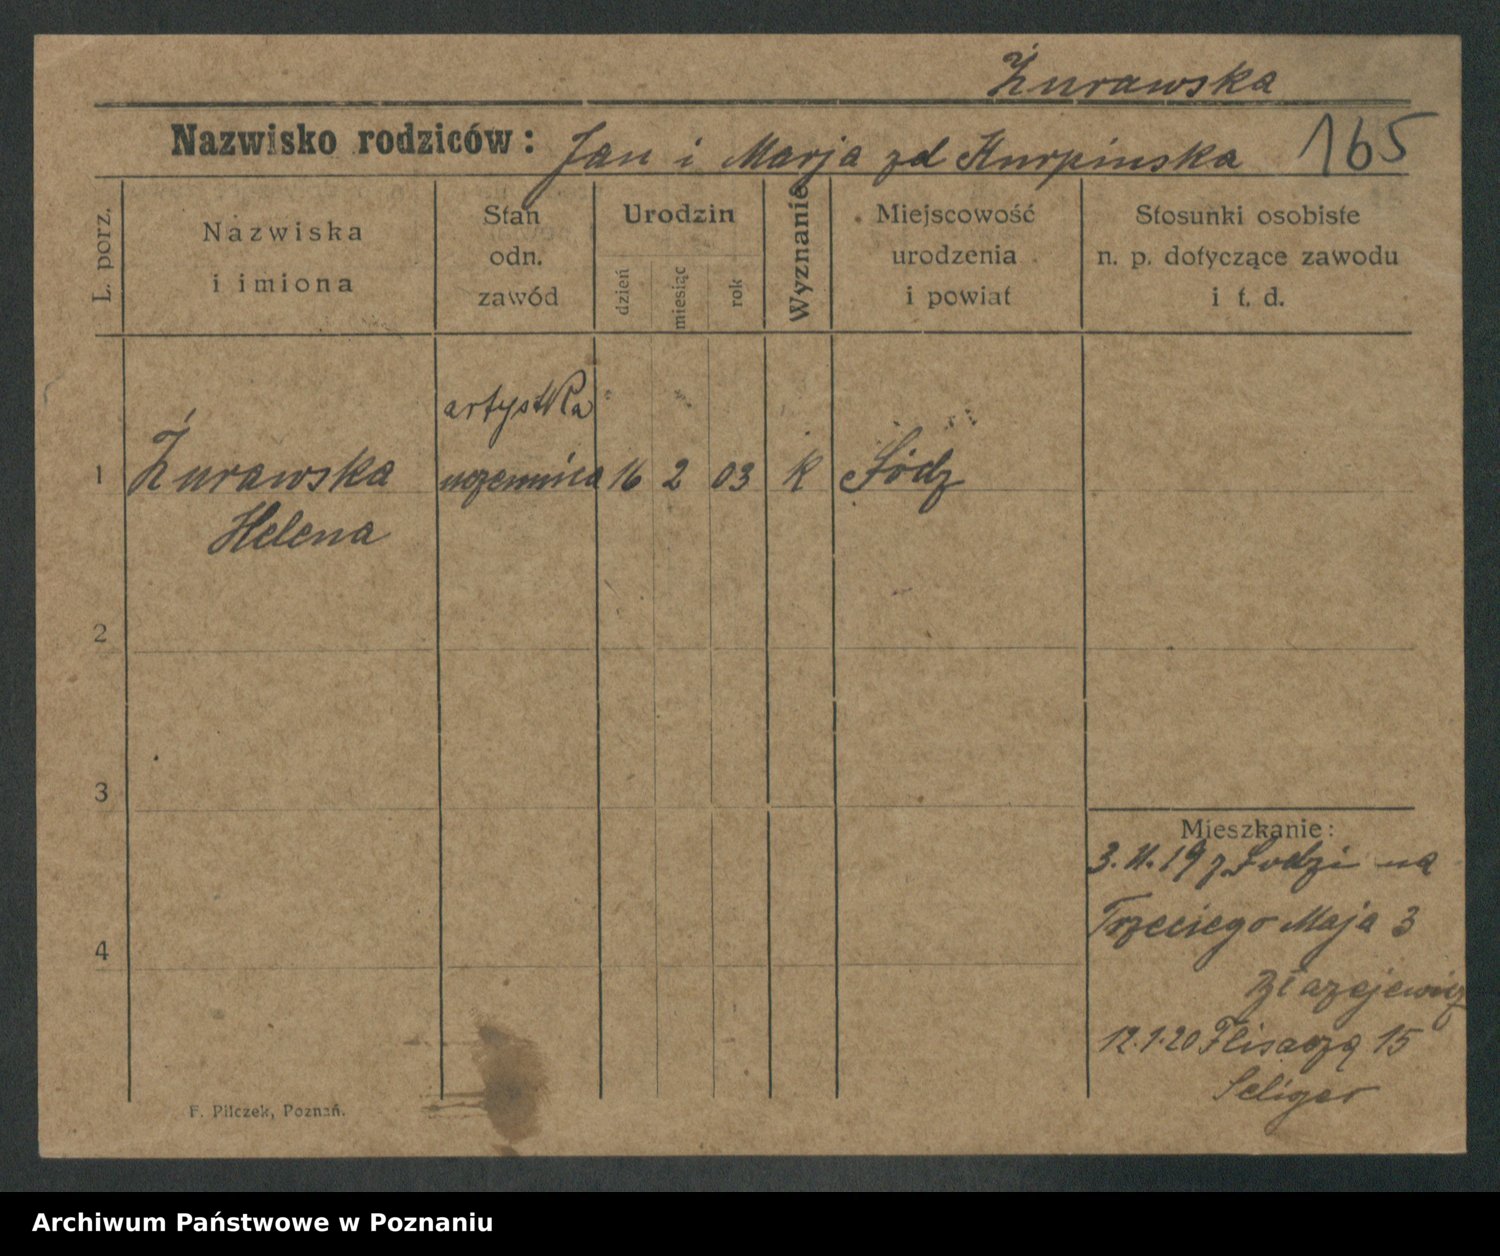 Żurawska
Nazwisko rodziców: Jan i Marja zd Kurpinska 165
L. porz.
Nazwiska
i imiona
Stan
odn.
zawód
Urodzin
dzień
miesiąc
rok
Wyznanie
Miejscowość
urodzenia
i powiat
Stosunki osobiste
n. p. dotyczące zawodu
i t. d.
artystka
1 Żurawska uczennica 16 2 03 k Łódz
Helena
2
3
Mieszkanie:
3.11.19 z Łodzi na
Trzeciego Maja 3
4
Błazejewicz
12.1.20 Flisaczą 15
Seliger
F. Pilczek, Poznań.
Archiwum Państwowe w Poznaniu